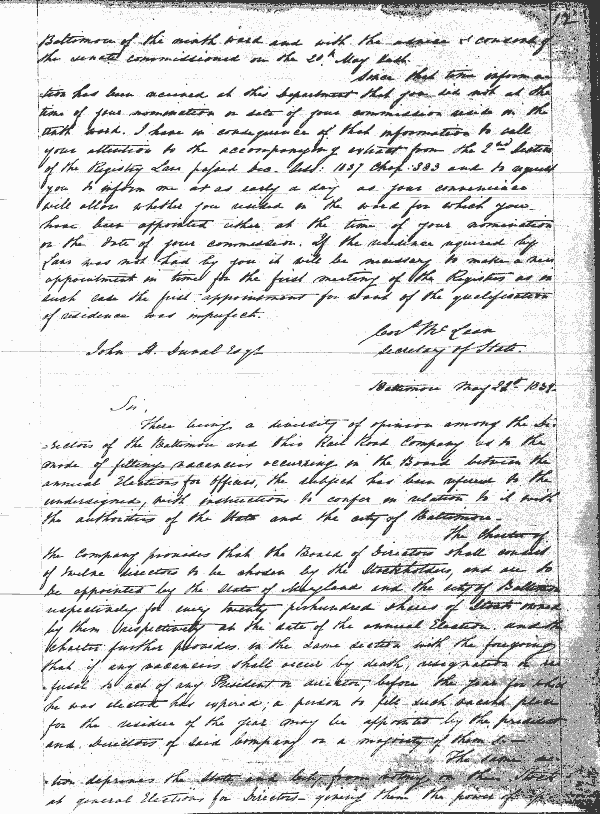 12
Baltimore of the ninth ward and with the advice & consent of
the senate commissioned on the 20th May last.
Since that time informa
tion has been received at this Department that you did not at the
time of your nomination or date of your commission reside in the
ninth ward. I have in consequence of that information to call
your attention to the accompanying extract from the 2nd Section
of the Registry Law passed Dec. Ses: 1837 Chap: 333 and to request
you to inform me at as early a day as your convenience
will allow whether you resided in the ward for which you
have been appointed either at the time of your nomination
or the date of your commission. If the residence required by
Law was not had by you it will be necessary to make a new
appointment in time for the first meeting of the Registers as in
such case the first appointment for want of the qualification
of residence was imperfect.
Cors. McLean
Secretary of State.
John H. Duval Esqr
Baltimore May 22d 1839
Sir,
There being a diversity of opinion among the Di-
-rectors of the Baltimore and Ohio Rail Road Company as to the
mode of filling vacancies occurring in the Board between the
annual Elections for officers, the subject has been referred to the
undersigned, with instructions to confer in relation to it with
the authorities of the State and the city of Baltimore.
The Charter of
the Company provides that the Board of Directors shall consist
of twelve directors to be chosen by the Stockholders, and one to
be appointed by the State of Maryland and the city of Baltimore
respectively for every twenty five hundred shares of Stock owned
by them respectively at the date of the annual Election. and the
charter further provides in the same section with the foregoing
that if any vacancies shall occur by death, resignation or re
-fusal to act of any President or director, before the year for which
he was elected has expired, a person to fill such vacant place
for the residue of the year may be appointed by the president
and Directors of said Company or a majority of them
The same sec
-tion deprives the State and City from voting on their Stock
at general Elections for Directors giving them the power of